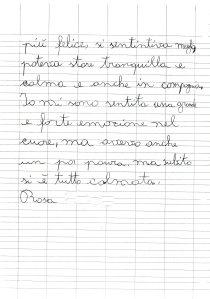 più felice, si sentintiva meglio
poteva stare tranquilla e
calma e anche in compagnia,
Io mi sono sentita una grande
e forte emozione nel
cuore, ma avevo anche
un po' paura, ma subito
si è tutto calmata.
Rosa